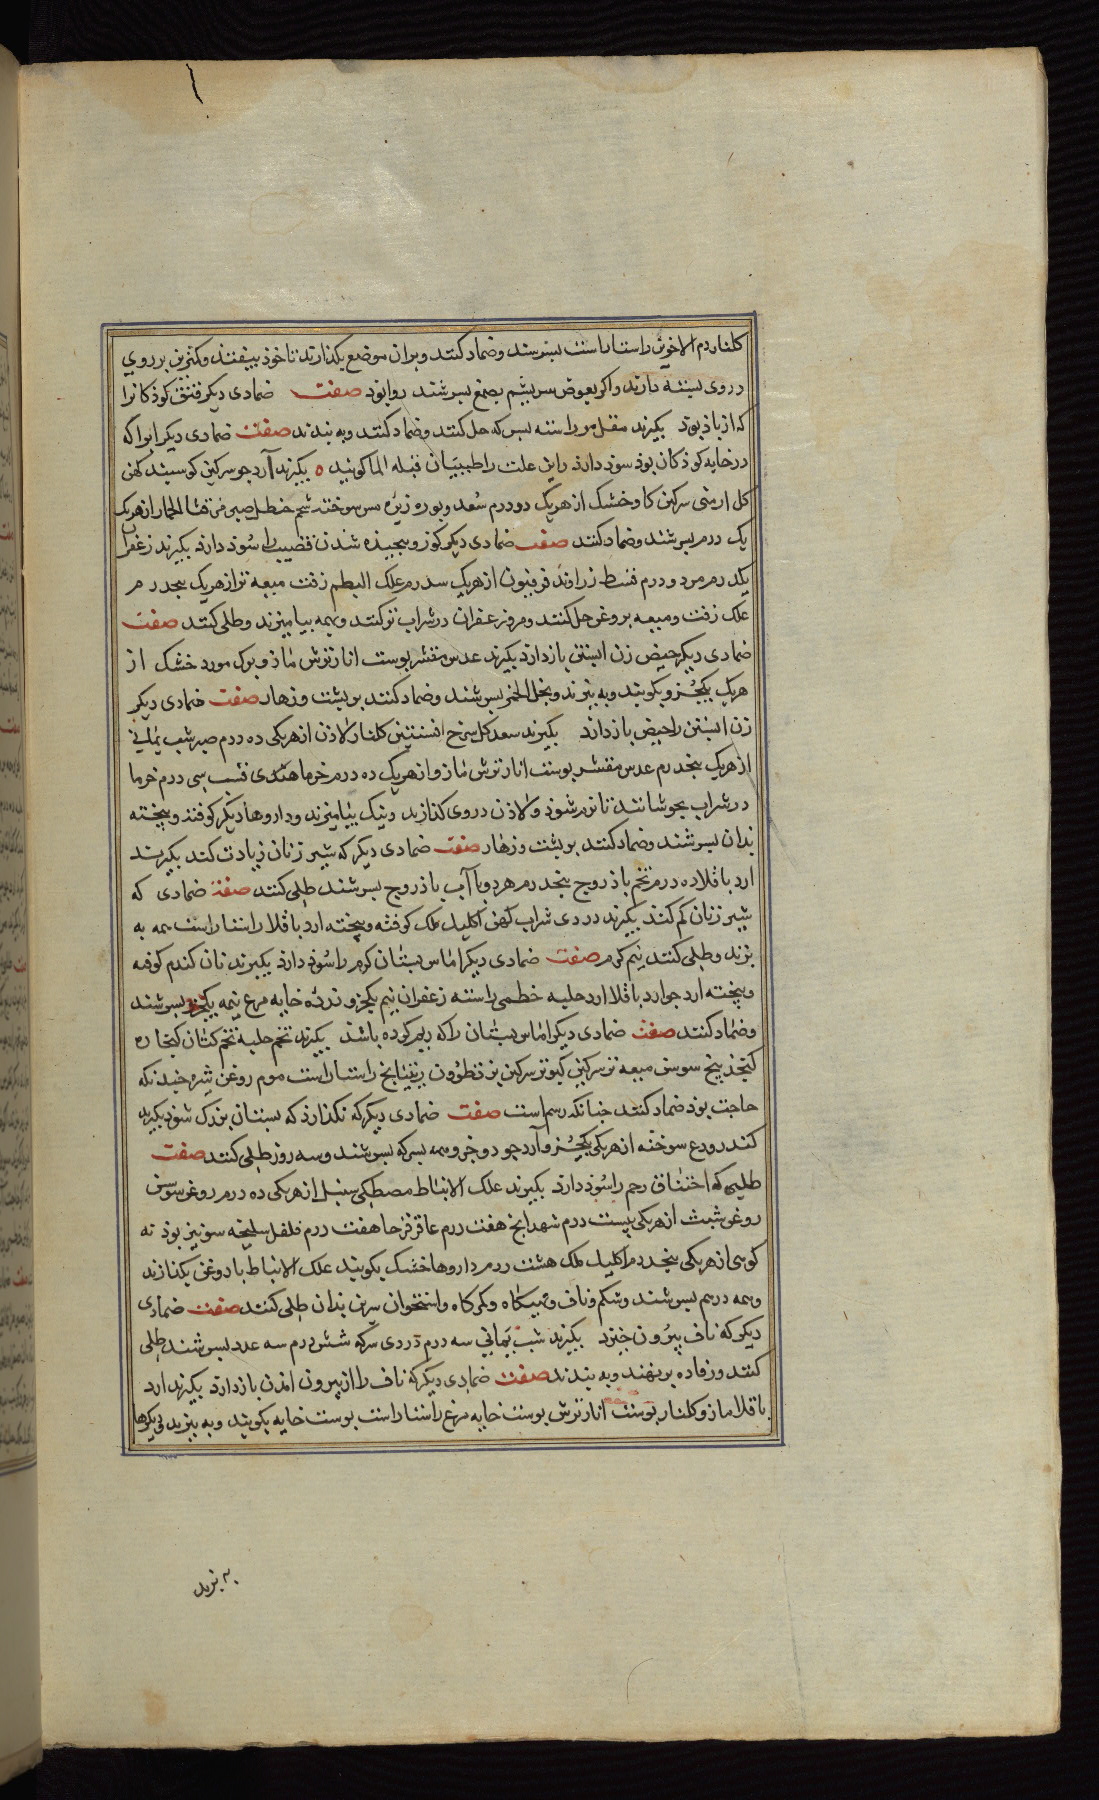 کلنار دم الاخوین راستاراست بسرشند و ضماد کنند و بران موضع بکذارند تا خوذ بیفتد و کتیرین بر روی
در روی بسته دارند و اکر بعوض سریشم بصمغ بسرشند روا بود صفت ضمادی دیکر فتق کوذکانرا
که از باذ بوذ بکیرند مقل مر راسته بسرکه حل کنند و ضماد کنند و به بندند صفت ضمادی دیکر انرا که
در خایه کوذکان بوذ سوذ دارد و این علت را طبیبان قیله الما کویند ه بکیرند آرد جو سرکین کوسبند کهن
کل ارمنی سرکین کاو خشک از هریک دو درم سعد و بوره زیره سر سوخته شحم حنظل صبر قثا الحمار از هریک
یک درم بسرشند و ضماد کنند صفت ضمادی دیکر کوز و بیجیذه شدن قضیب را سوذ دارد بکیرند زعفران
یکدرم مر دو درم قسط زراوند فرفیون از هریک سدرم علک البطم زفت میعه تر از هریک بنجدرم
علک زفت و میعه بروغن حل کنند و مر و زعفران در شراب تر کنند و همه بیامیزند و طلی کنند صفت
ضمادی دیکر حیض زن ابستن باز دارد بکیرند عدس مقشر بوست انار ترش مازو برک مورد خشک از
هریک یکجزو بکوبند و به بیزند و بخل الخمر بسرشند و ضماد کنند بر بشت و زهار صفت ضمادی دیکر
زن ابستن را حیض باز دارد بکیرند سعد کل سرخ افسنتین کلنار لاذن از هریکی ده درم صبر شب یمانی
از هریک بنجدرم عدس مقشر بوست انار ترش مازو از هریک ده درم خرما هندی قسب سی درم خرما
در شراب بجوشانند تا نرم شوذ و لاذن در وی کدازند و نیک بیامیزند و داروهاء دیکر کوفته و بیخته
بدان بسرشند و ضماد کنند بر بشت و زهار صفت ضمادی دیکر که شیر زنان زیادت کند بکیرند
ارد باقلا ده درم تخم باذروج بنجدرم هر دو باآب باذروج بسرشند طلی کنند صفة ضمادی که
شیر زنان کم کند بکیرند دردی شراب کهن اکلیل ملک کوفته و بیخته ارد باقلا راستاراست همه به
بزند و طلی کنند نیم کرم صفت ضمادی دیکر اماس بستان کرم را سوذ دارد بکیرند نان کندم کوفته
و بیخته ارد جو ارد باقلا ارد حلبه خطمی راسته زعفران نیم یکجزو زرده خایه مرغ نیمه یکجزو بسرشند
و ضماد کنند صفت ضمادی دیکر اماس بستان را که ریم کرده باشد بکیرند تخم حلبه تخم کتان کنجاره
کنجد بیخ سوسن میعه تر سرکین کبوتر سرکین بز نطرون ریتیانج راستاراست موم روغن شیره جندانکه
حاجت بوذ ضماد کنند جنانکه رسم است صفت ضمادی دیکر که نکذارد که بستان بزرک شوذ بکیرند
کندر ودع سوخته از هریکی یکجزو آرد جو دو جزو همه بسرکه بسرشند و سه روز طلی کنند صفت
طلیی که اختناق رحم را سوذ دارد بکیرند علک الانباط مصطکی سنبل از هریکی ده درم روغن سوسن
روغن شبث از هریکی بیست درم شهدانج هفت درم عاقرقرحا هفت درم فلفل سلیخه سونیز بوذنه
کوهی از هریکی بنجدرم اکلیل ملک هشت درم داروها خشک بکوبند علک الانباط با روغن بکدازند
و همه درهم بسرشند و شکم و ناف و تهیکاه و کمرکاه و استخوان سرین بدان طلی کنند صفت ضمادی
دیکر که ناف بیرون خیزد بکیرند شب یمانی سه درم دردی سرکه شش درم سه عدد بسرشند طلی
کنند و رفاده بر نهند و به بندند صفت ضمادی دیکر که ناف را از بیرون امذن باز دارد بکیرند ارد
باقلا مازو کلنار بوست انار ترش بوست خایه مرغ راستاراست بوست خایه بکوبند و به بیزند و دیکرها
به بزند